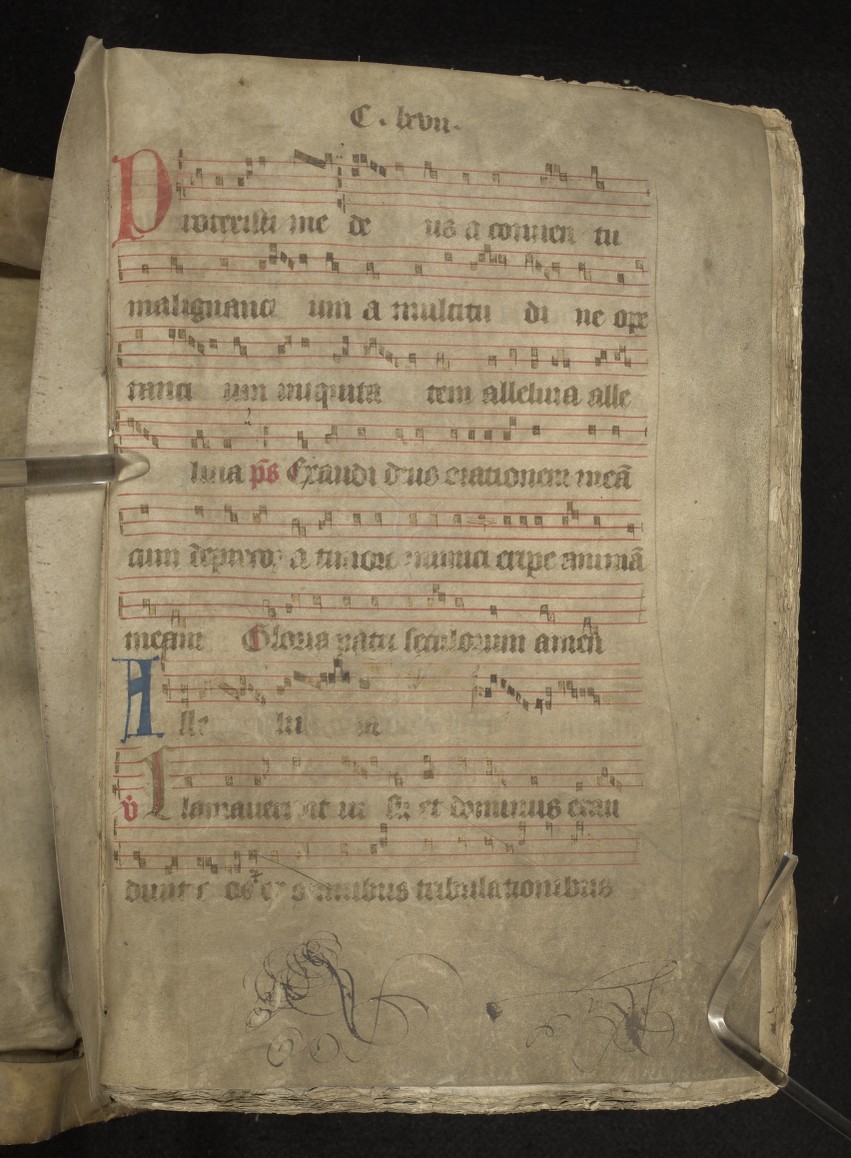 C. lxvii.
Protexisti me de us a conuen tu
malignanci um a multitu di ne ope
ranci um iniquita tem alleluia alle
luia ps Exaudi deus orationem meā
cum deprecor a timore inimici eripe animā
meam Gloria patri seculorum amen
Alle lu ia
v̇ Clamauerunt iusti et dominus exau
diuit eos ex omnibus tribulationibus